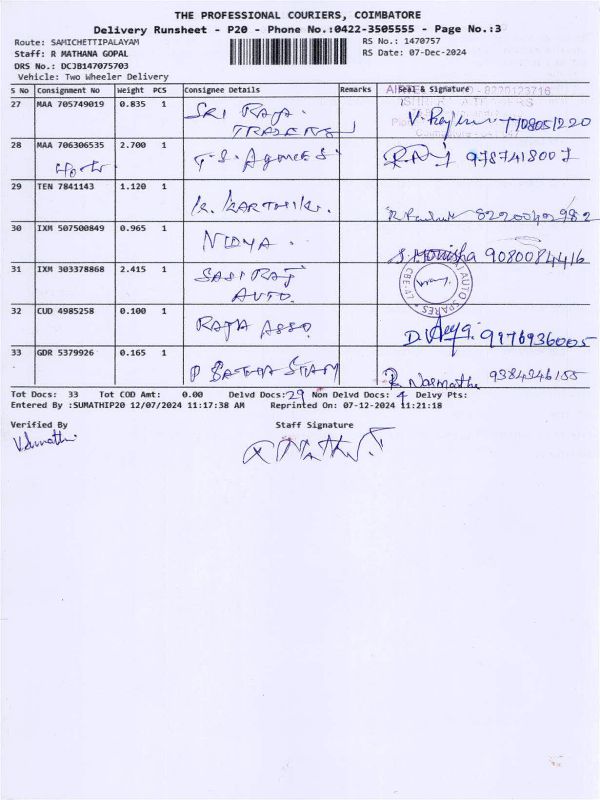 THE PROFESSIONAL COURIERS, COIMBATORE
Delivery Runsheet - P20 - Phone No.:0422-3505555 - Page No.:3
Route: SAMICHETTIPALAYAM
RS No.: 1470757
Staff: R MATHANA GOPAL
RS Date: 07-Dec-2024
DRS No.: DCJB147075703
Vehicle: Two Wheeler Delivery
S No Consignment No Weight PCS Consignee Details Remarks Seal & Signature
27 MAA 705749019 0.835 1 SRI RAJA TRADERS
28 MAA 706306535 2.700 1 T.S. Agnes S 9787418007
29 TEN 7841143 1.120 1 K. KARTHIK. 8220042982
30 IXM 507500849 0.965 1 NIDYA. S. Monisha 9080084416
31 IXM 303378868 2.415 1 SASI RAJ AUTO.
AUTO SPARES
32 CUD 4985258 0.100 1 RAJA ASSO. 9976936005
33 GDR 5379926 0.165 1
Tot Docs: 33 Tot COD Amt: 0.00 Delvd Docs:29 Non Delvd Docs: 4 Delvy Pts:
Entered By :SUMATHIP20 12/07/2024 11:17:38 AM Reprinted On: 07-12-2024 11:21:18
Verified By Staff Signature